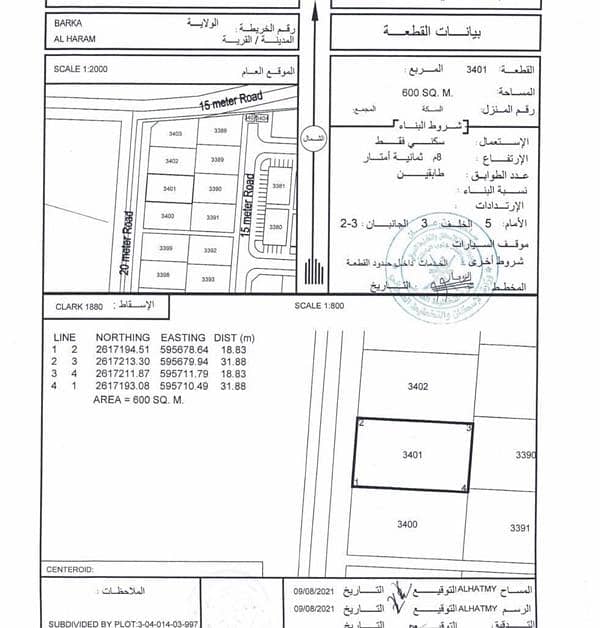 BARKA الولاية :
رقم الخريطة :
AL HARAM المدينة / القرية :
بيانات القطعة
SCALE 1:2000 الموقع العام
القطعة : 3401 المربع :
المساحة: 600 SQ. M.
رقم المنزل: السكة المجمع:
شروط البناء
الإستعمال: سكني فقط
الإرتفاع : 8م ثمانية أمتار
عدد الطوابق : طابقين
نسبة البناء :
الإرتدادات
الأمام: 5 الخلف: 3 الجانبان: 3-2
موقف السيارات :
شروط أخرى : الخدمات داخل حدود القطعة
المخطط التاريخ
15 meter Road
3403
3388
3402
3389
3401
3390
3400
3391
3399
3392
3398
3393
3381
3380
3404
20 meter Road
15 meter Road
الشمال
CLARK 1880 الإسقاط :
SCALE 1:800
LINE NORTHING EASTING DIST (m)
1 2 2617194.51 595678.64 18.83
2 3 2617213.30 595679.94 31.88
3 4 2617211.87 595711.79 18.83
4 1 2617193.08 595710.49 31.88
AREA = 600 SQ. M.
3402
2
3
3401
3390
1
4
3400
3391
CENTEROID:
الملاحظات :
المساح ALHATMY التوقيع التاريخ 09/08/2021
الرسم ALHATMY التوقيع التاريخ 09/08/2021
التدقيق التوقيع التاريخ
SUBDIVIDED BY PLOT:3-04-014-03-997